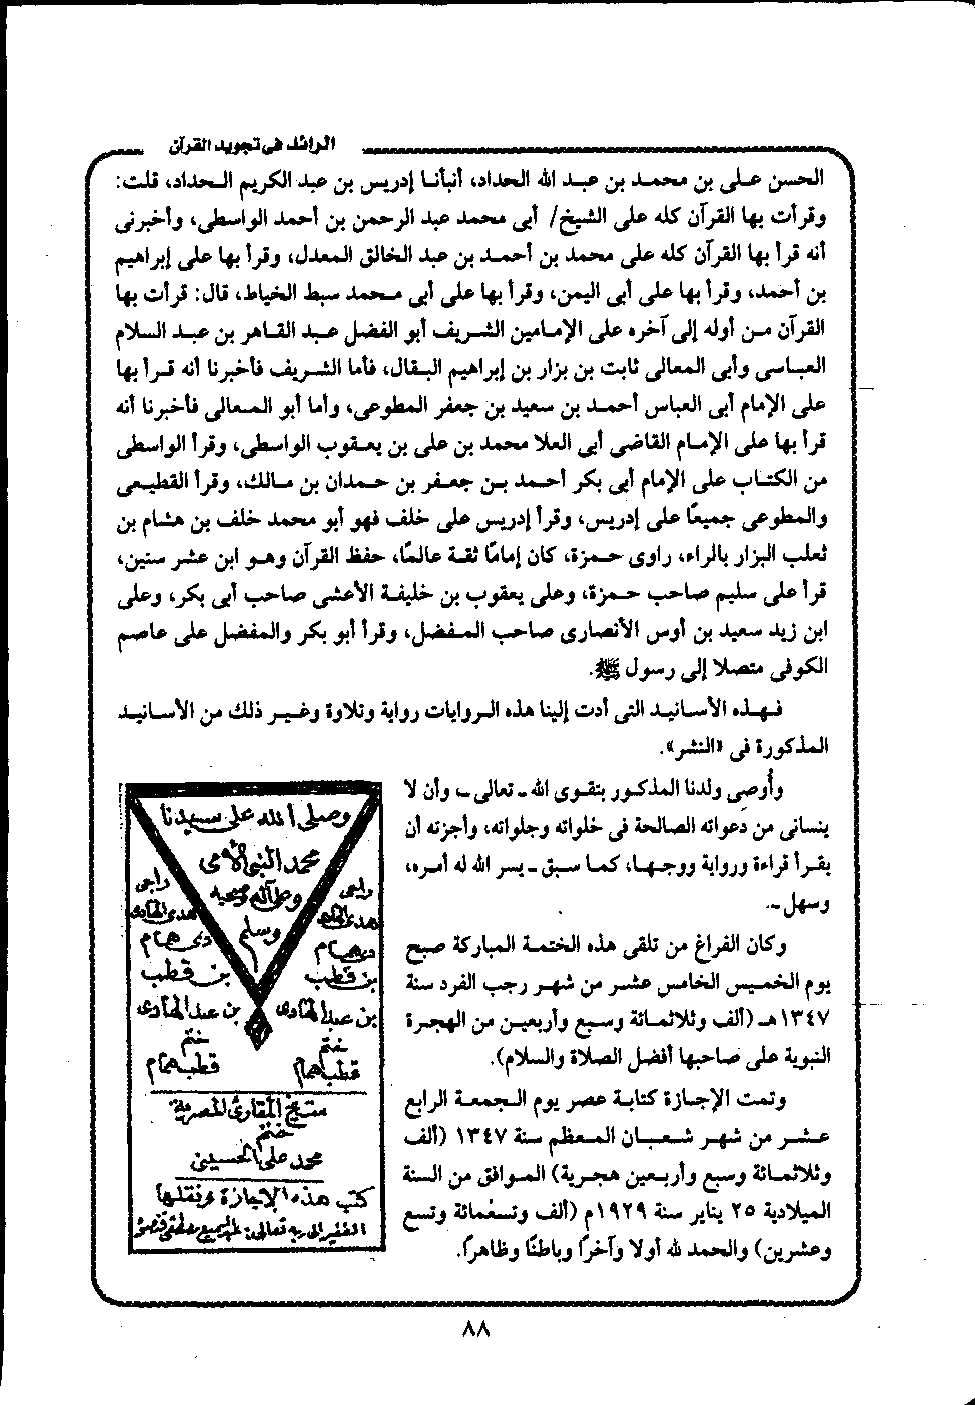 الرائد فى تجويد القرآن
الحسن على بن محمد بن عبد الله الحداد، أنبأنا إدريس بن عبد الكريم الحداد، قلت:
وقرأت بها القرآن كله على الشيخ/ أبى محمد عبد الرحمن بن أحمد الواسطى، وأخبرنى
أنه قرأ بها القرآن كله على محمد بن أحمد بن عبد الخالق المعدل، وقرأ بها على إبراهيم
بن أحمد، وقرأ بها على أبى اليمن، وقرأ بها على أبى محمد سبط الخياط، قال: قرأت بها
القرآن من أوله إلى آخره على الإمامين الشريف أبو الفضل عبد القاهر بن عبد السلام
العباسى وأبى المعالى ثابت بن بزار بن إبراهيم البقال، فأما الشريف فأخبرنا أنه قرأ بها
على الإمام أبى العباس أحمد بن سعيد بن جعفر المطوعى، وأما أبو المعالى فأخبرنا أنه
قرأ بها على الإمام القاضى أبى العلا محمد بن على بن يعقوب الواسطى، وقرأ الواسطى
من الكتاب على الإمام أبى بكر أحمد بن جعفر بن حمدان بن مالك، وقرأ القطيعى
والمطوعى جميعًا على إدريس، وقرأ إدريس على خلف فهو أبو محمد خلف بن هشام بن
ثعلب البزار بالراء، راوى حمزة، كان إمامًا ثقة عالمًا، حفظ القرآن وهو ابن عشر سنين،
قرأ على سليم صاحب حمزة، وعلى يعقوب بن خليفة الأعشى صاحب أبى بكر، وعلى
ابن زيد سعيد بن أوس الأنصارى صاحب المفضل، وقرأ أبو بكر والمفضل على عاصم
الكوفى متصلا إلى رسول ﷺ.
فهذه الأسانيد التى أدت إلينا هذه الروايات رواية وتلاوة وغير ذلك من الأسانيد
المذكورة فى «النشر».
وأُوصِى ولدنا المذكور بتقوى الله - تعالى - وأن لا
ينسانى من دعواته الصالحة فى خلواته وجلواته، وأجزته أن
يقرأ قراءة ورواية ووجهـا، كما سبق - يسر الله له أمره،
وسهل -.
وكان الفراغ من تلقى هذه الختمة المباركة صبح
يوم الخميس الخامس عشر من شهر رجب الفرد سنة
١٣٤٧هـ (ألف وثلاثمائة وسبع وأربعين من الهجرة
النبوية على صاحبها أفضل الصلاة والسلام).
وتمت الإجازة كتابة عصر يوم الجمعة الرابع
عشر من شهر شعبان المعظم سنة ١٣٤٧ (ألف
وثلاثمائة وسبع وأربعين هجرية) الموافق من السنة
الميلادية ٢٥ يناير سنة ١٩٢٩م (ألف وتسعمائة وتسع
وعشرين) والحمد لله أولا وآخرًا وباطنًا وظاهرًا.
وصلى الله على سيدنا
محمد النبى الأمى
وعلى آله وصحبه
وسلم
راجى
هدى الهادى
همام
بن قطب
بن عبد الهادى
ختم
قطب همام
راجى
هدى الهادى
همام
بن قطب
بن عبد الهادى
ختم
قطب همام
شيخ المقارئ المصرية
ختم
محمد على الحسينى
كتب هذه الإجازة ونقلها
الفقير إلى ربه تعالى:
٨٨